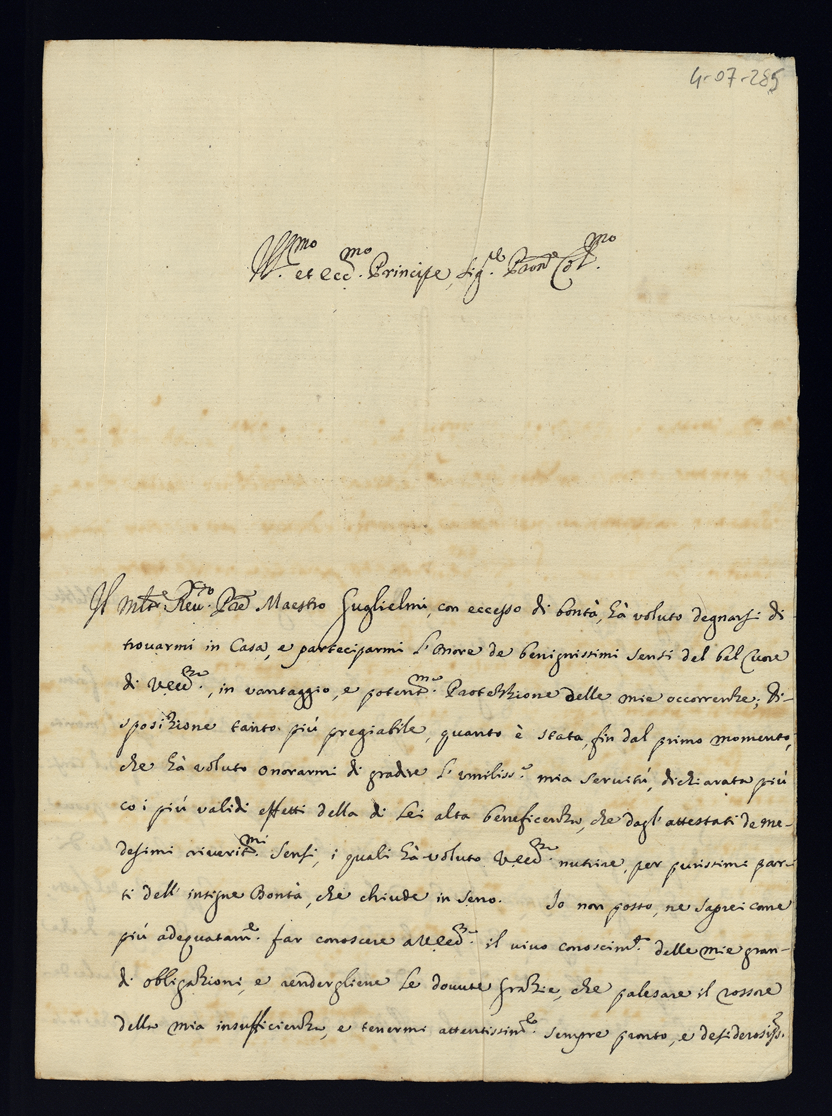 4-07-285
Ill.mo et ecc.mo Principe, Sig.re Pron.e Col.mo
Il Mlt'. Reu.do Pad.e Maestro Guglielmi, con eccesso di bontà, hà voluto degnarsi di
trouarmi in Casa, e parteciparmi l'Onore de benignissimi sensi del bel Cuore
di V.ecc.za, in vantaggio, e potent.ma Protezzione delle mie occorrenze; di-
sposizione tanto più pregiabile, quanto è stata, fin dal primo momento,
che hà voluto onorarmi di gradire l'vmiliss.a mia seruitù, dichiarata più
co i più validi effetti della di Lei alta beneficenza, che dagl'attestati de me-
desimi riuerit.mi sensi, i quali hà voluto V.ecc.za nutrire, per purissimi par-
ti dell'insigne Bontà, che chiude in seno. Io non posso, ne saprei come
più adequatam.e far conoscere a V.ecc.za il viuo conoscim.to delle mie gran-
di obligazioni, e rendergliene le douute grazie, che palesare il rossore
della mia insufficienza, e tenermi attentissim.o sempre pronto, e desiderosiss.o